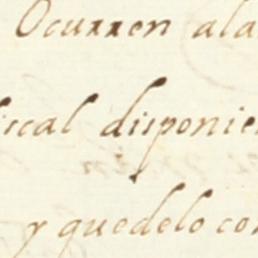 Ocurren ala
iscal disponie
y quedelo co